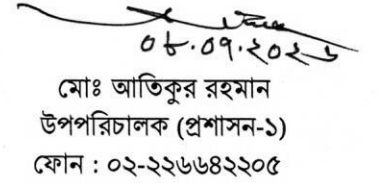 ০৮.০৭.২০২৬
মোঃ আতিকুর রহমান
উপপরিচালক (প্রশাসন-১)
ফোন : ০২-২২৬৬৪২২০৫